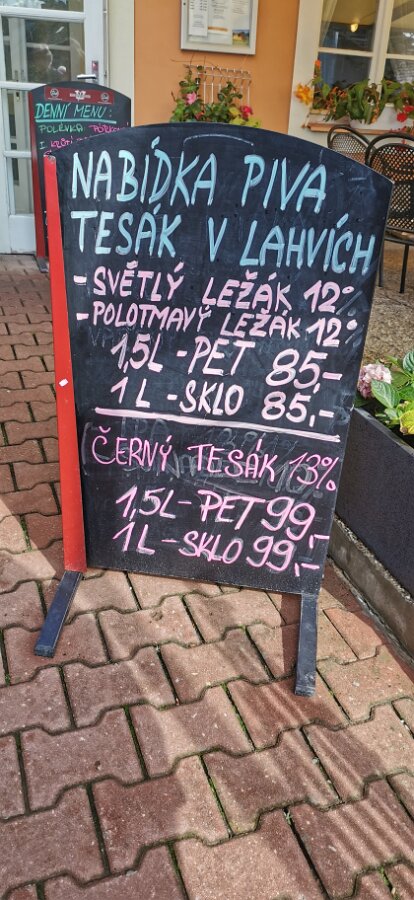 DENNÍ MENU:
POLÉVKA
NABÍDKA PIVA
TESÁK V LAHVÍCH
- SVĚTLÝ LEŽÁK 12°
- POLOTMAVÝ LEŽÁK 12°
1,5L - PET 85,-
1L - SKLO 85,-
ČERNÝ TESÁK 13%
1,5L - PET 99,-
1L - SKLO 99,-